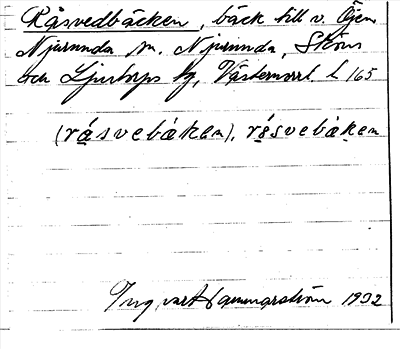 Råsvedbäcken, bäck till v. Öjen
Njurunda sn. Njurunda, Sköns
och Ljustorps tg, Västernorrl. l. 165
(råsvebäken), røsvebäken
Ingvar Hammarström 1932